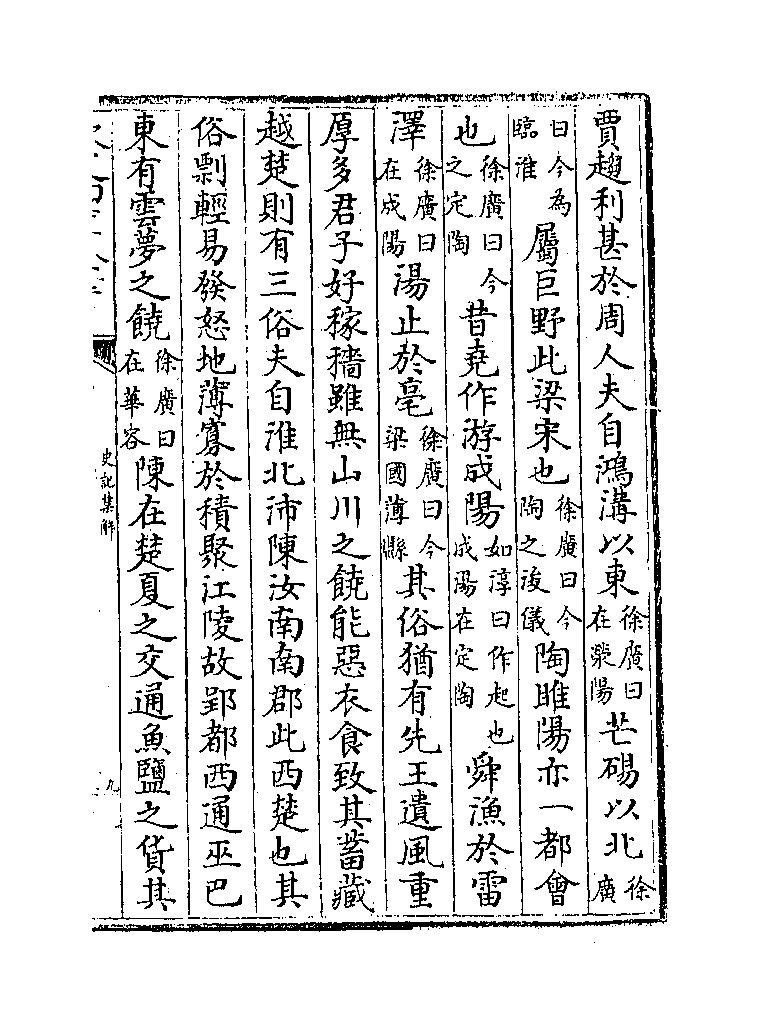 賈趨利甚於周人夫自鴻溝以東徐廣曰在滎陽芒碭以北徐廣
曰今為臨淮屬巨野此梁宋也徐廣曰今陶之浚儀陶睢陽亦一都會
也徐廣曰今之定陶昔堯作游成陽如淳曰作起也成陽在定陶舜漁於雷
澤徐廣曰在成陽湯止於亳徐廣曰今梁國薄縣其俗猶有先王遺風重
厚多君子好稼穡雖無山川之饒能惡衣食致其蓄藏
越楚則有三俗夫自淮北沛陳汝南南郡此西楚也其
俗剽輕易發怒地薄寡於積聚江陵故郢都西通巫巴
東有雲夢之饒徐廣曰在華容陳在楚夏之交通魚鹽之貨其
史記集解
九